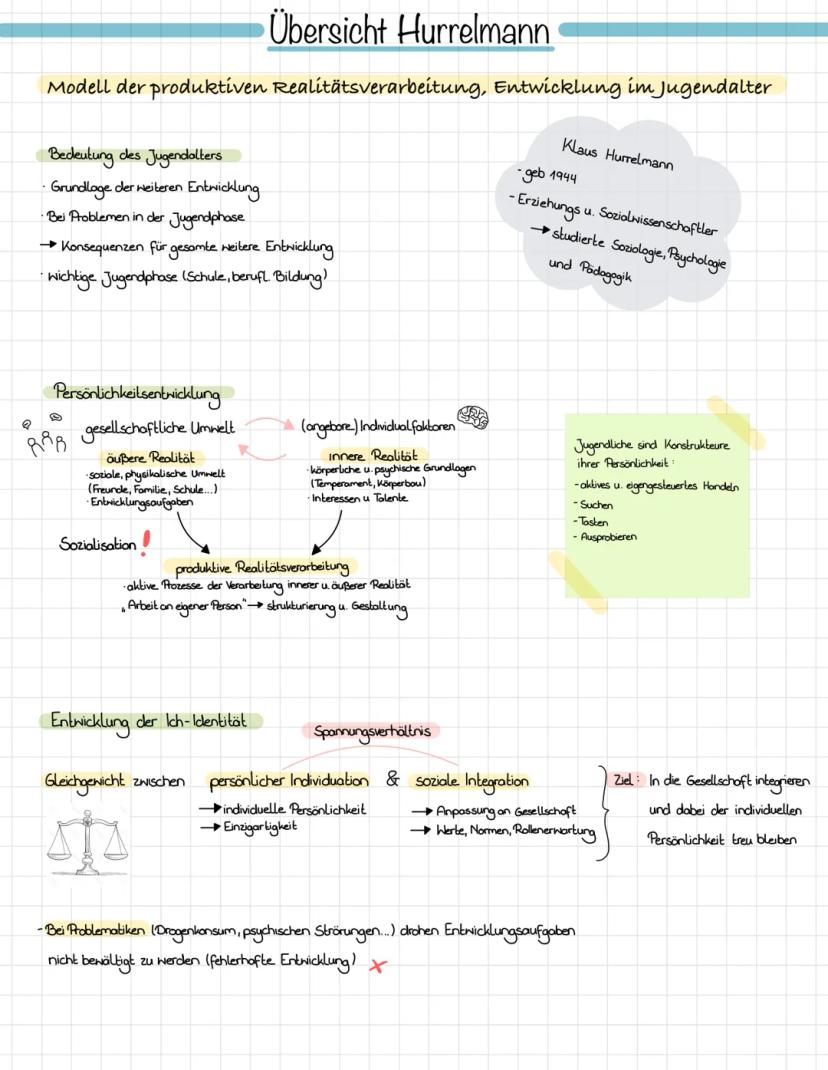 Übersicht Hurrelmann
Modell der produktiven Realitätsverarbeitung, Entwicklung im Jugendalter
Bedeutung des Jugendalters
· Grundlage der weiteren Entwicklung
· Bei Problemen in der Jugendphase
→ Konsequenzen für gesamte weitere Entwicklung
· wichtige Jugendphase (Schule, berufl. Bildung)
Klaus Hurrelmann
- geb 1944
- Erziehungs u. Sozialwissenschaftler
→ studierte Soziologie, Psychologie
und Pädagogik
Persönlichkeitsentwicklung
gesellschaftliche Umwelt
äußere Realität
· soziale, physikalische Umwelt
(Freunde, Familie, Schule...)
· Entwicklungsaufgaben
(angebore.) Individualfaktoren
innere Realität
· körperliche u. psychische Grundlagen
(Temperament, Körperbau)
· Interessen u Talente
Sozialisation !
produktive Realitätsverarbeitung
· aktive Prozesse der Verarbeitung innerer u. äußerer Realität
„Arbeit an eigener Person" → strukturierung u. Gestaltung
Jugendliche sind Konstrukteure
ihrer Persönlichkeit:
- aktives u. eigengesteuertes Handeln
- Suchen
- Tasten
- Ausprobieren
Entwicklung der Ich-Identität
Spannungsverhältnis
Gleichgewicht zwischen persönlicher Individuation & soziale Integration
→ individuelle Persönlichkeit
→ Einzigartigkeit
→ Anpassung an Gesellschaft
→ Werte, Normen, Rollenerwartung
Ziel: In die Gesellschaft integrieren
und dabei der individuellen
Persönlichkeit treu bleiben
- Bei Problematiken (Drogenkonsum, psychischen Strörungen...) drohen Entwicklungsaufgaben
nicht bewältigt zu werden (fehlerhafte Entwicklung) x